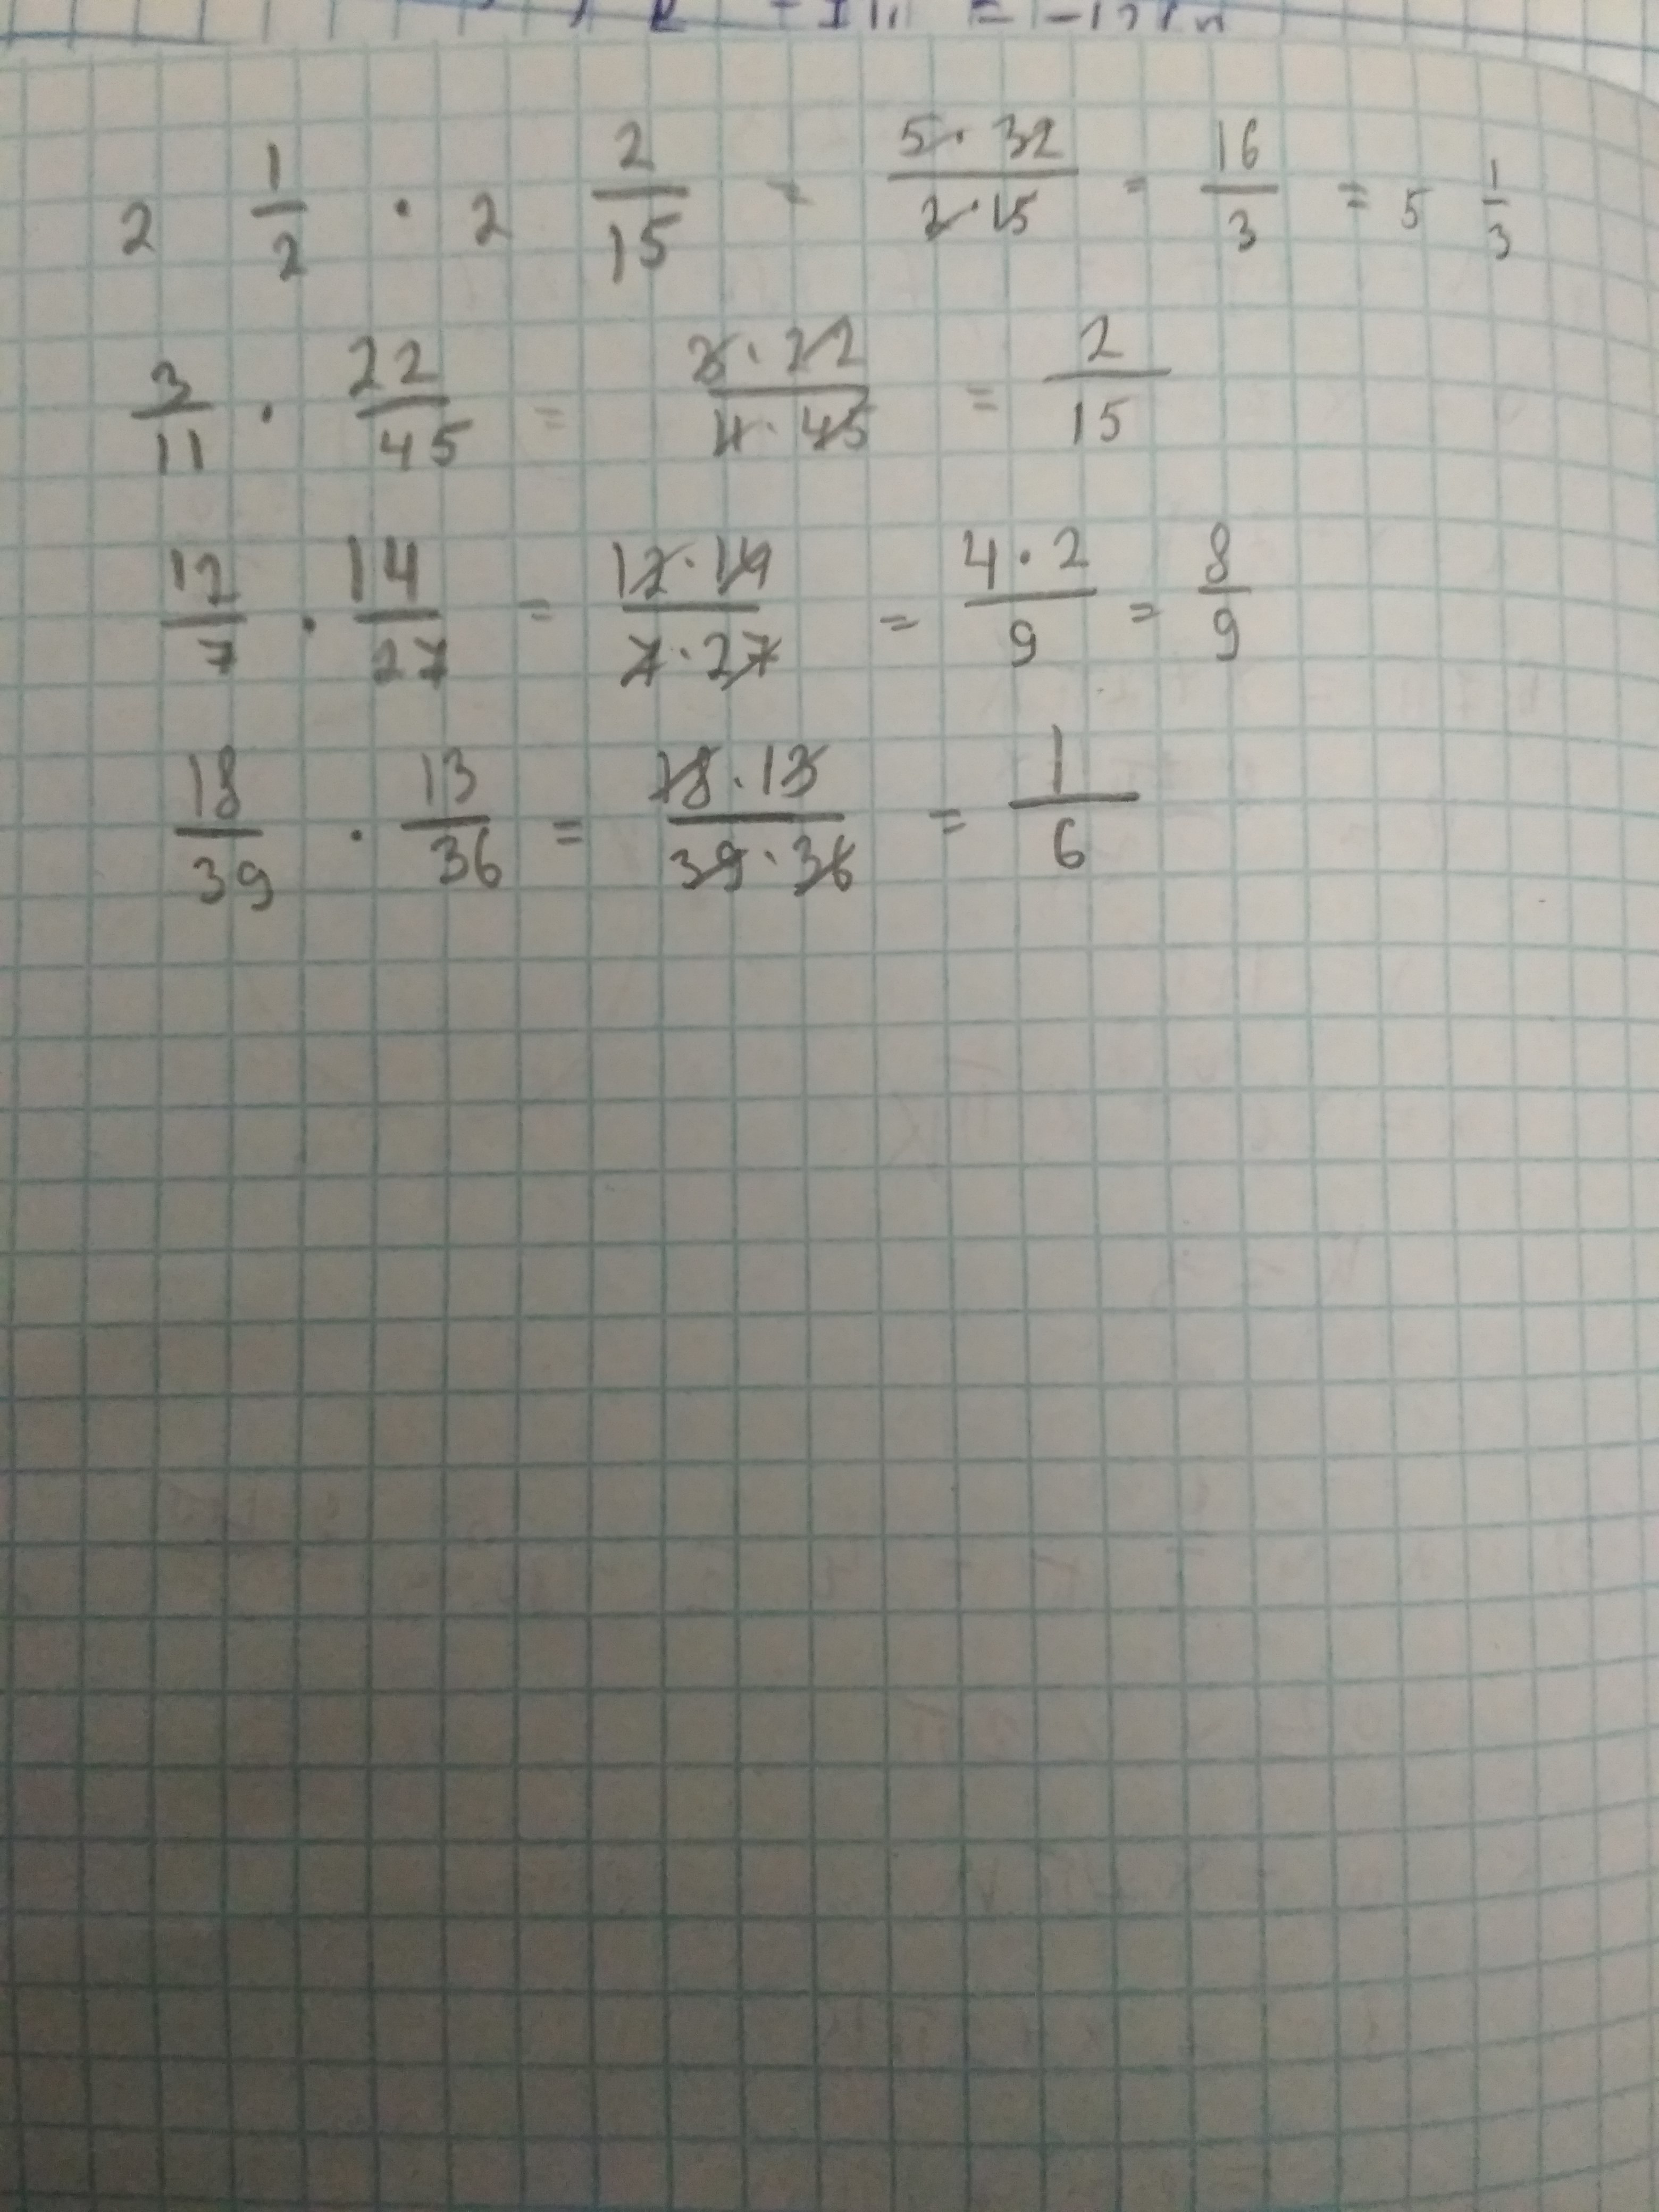 2 1/2 · 2 2/15 = 5·32/2·15 = 16/3 = 5 1/3
3/11 · 22/45 = 3·22/11·45 = 2/15
12/7 · 14/27 = 12·14/7·27 = 4·2/9 = 8/9
18/39 · 13/36 = 18·13/39·36 = 1/6